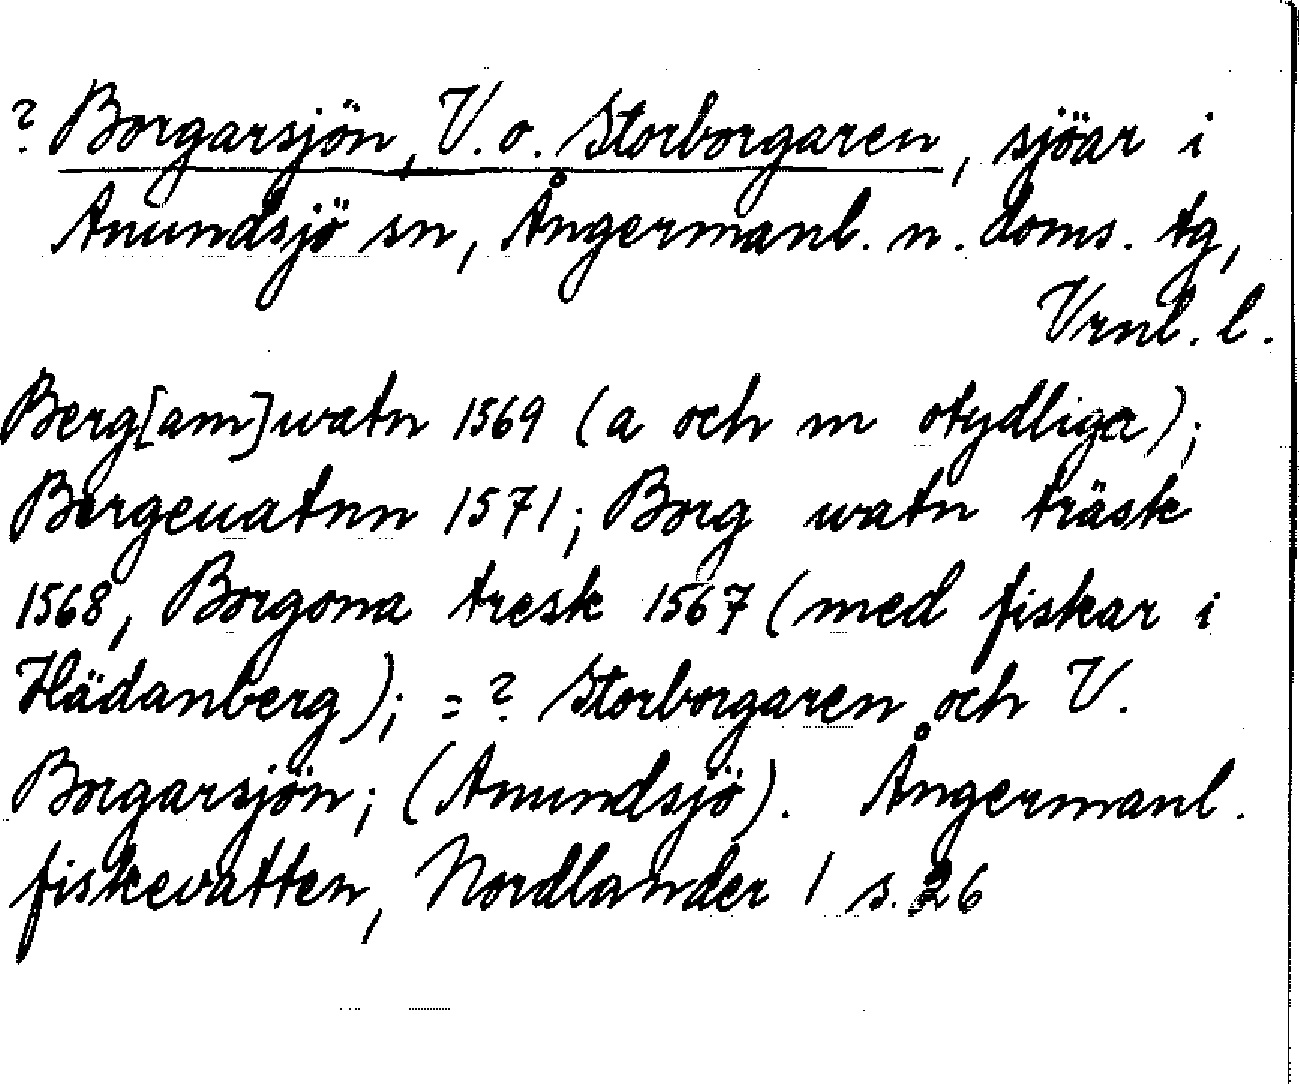 ? Borgarsjön, V. o. Storborgaren, sjöar i
Anundsjö sn, Ångermanl. n. doms. tg,
Vrnl. l.
Berg[am]watn 1569 (a och m otydliga);
Bergeuatnn 1571; Borg watn träsk
1568, Borgona tresk 1567 (med fiskar i
Hädanberg); = ? Storborgaren och V.
Borgarsjön; (Anundsjö). Ångermanl.
fiskevatten, Nordlander 1 s. 26